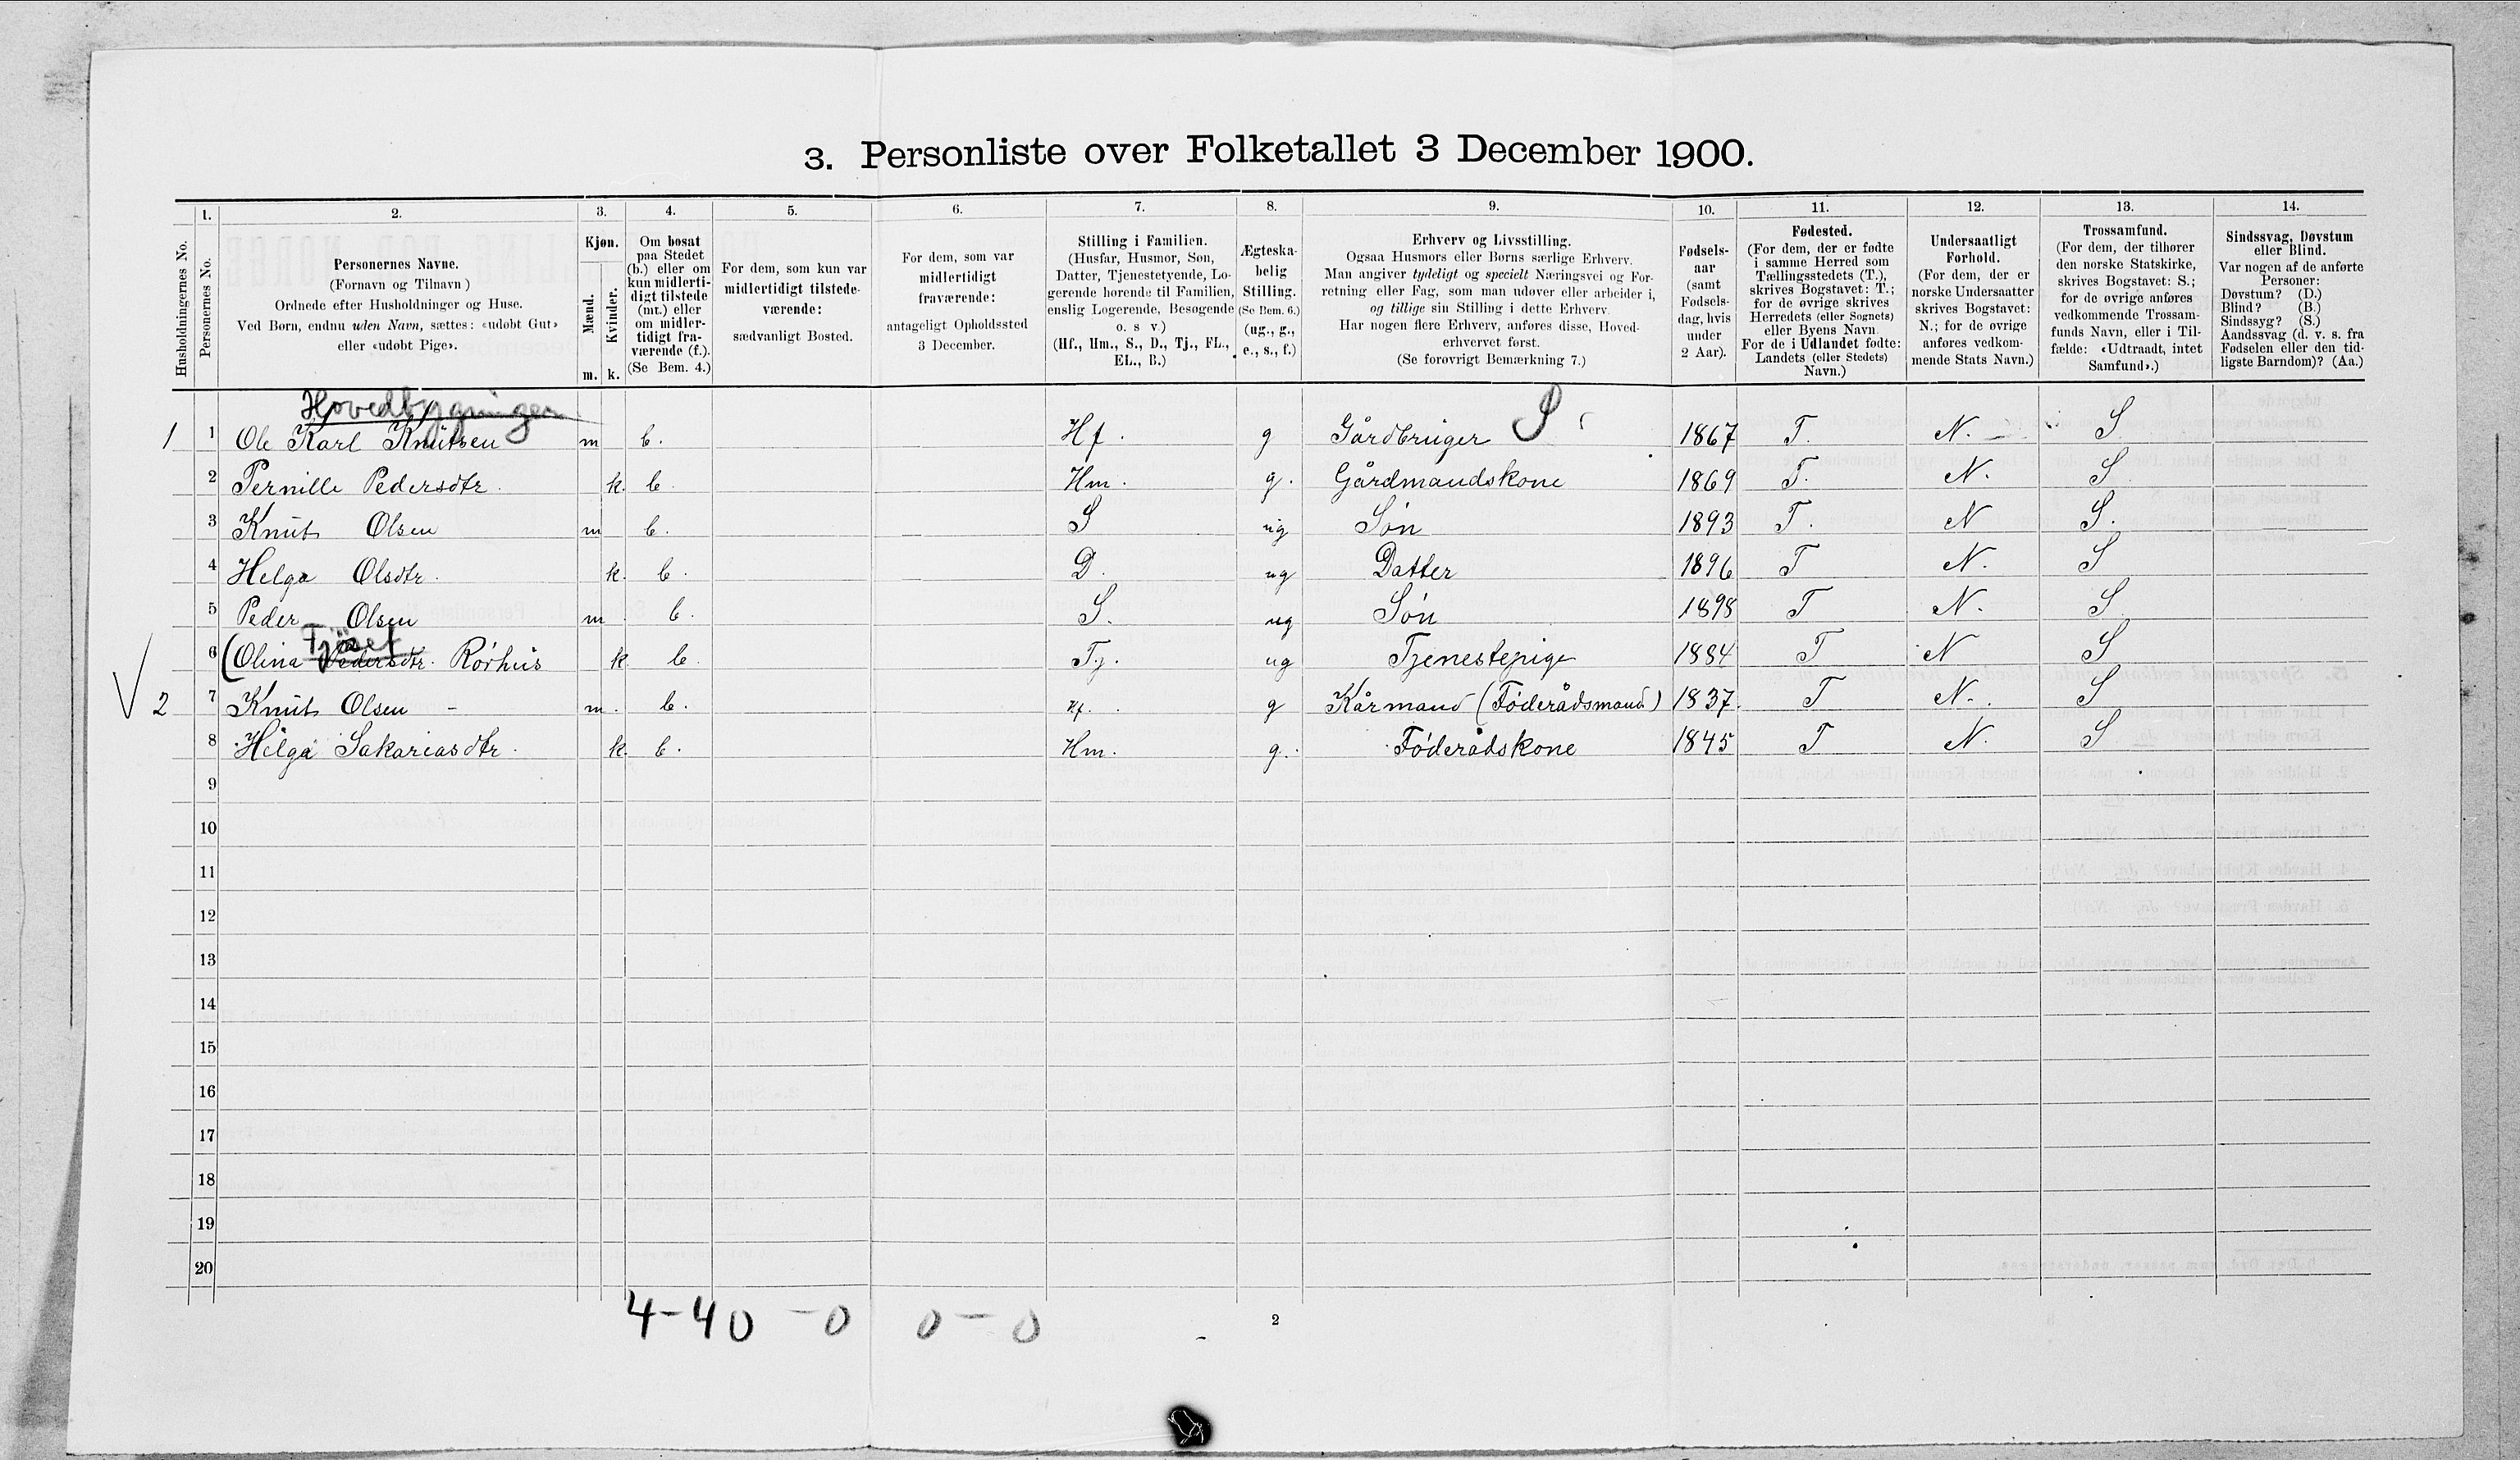 3. Personliste over Folketallet 3 December 1900.
Husholdningernes No.
1. Personernes No.
2. Personernes Navne.
(Fornavn og Tilnavn)
Ordnede efter Husholdninger og Huse.
Ved Børn, endnu uden Navn, sættes: «udøbt Gut»
eller «udøbt Pige».
3. Kjøn.
Mænd. Kvinder.
m. k.
4. Om bosat
paa Stedet
(b.) eller om
kun midlerti-
digt tilstede
(mt.) eller
om midler-
tidigt fra-
værende (f.).
(Se Bem. 4.)
5. For dem, som kun var
midlertidigt tilstede-
værende:
sædvanligt Bosted.
6. For dem, som var
midlertidigt
fraværende:
antageligt Opholdssted
3 December.
7. Stilling i Familien.
(Husfar, Husmor, Søn,
Datter, Tjenestetyende, Lo-
gerende hørende til Familien,
enslig Logerende, Besøgende
o. s v.)
(Hf., Hm., S., D., Tj., FL.,
EL., B.)
8. Ægteska-
belig
Stilling.
(Se Bem. 6.)
(ug., g.,
e., s., f.)
9. Erhverv og Livsstilling.
Ogsaa Husmors eller Børns særlige Erhverv.
Man angiver tydeligt og specielt Næringsvei og For-
retning eller Fag, som man udøver eller arbeider i,
og tillige sin Stilling i dette Erhverv.
Har nogen flere Erhverv, anføres disse, Hoved-
erhvervet først.
(Se forøvrigt Bemærkning 7.)
10. Fødsels-
aar
(samt
Fødsels-
dag, hvis
under
2 Aar).
11. Fødested.
(For dem, der er fødte
i samme Herred som
Tællingsstedets (T.),
skrives Bogstavet: T.;
for de øvrige skrives
Herredets (eller Sognets)
eller Byens Navn.
For de i Udlandet fødte:
Landets (eller Stedets)
Navn.)
12. Undersaatligt
Forhold.
(For dem, der er
norske Undersaatter
skrives Bogstavet:
N.; for de øvrige
anføres vedkom-
mende Stats Navn.)
13. Trossamfund.
(For dem, der tilhører
den norske Statskirke,
skrives Bogstavet: S.;
for de øvrige anføres
vedkommende Trossam-
funds Navn, eller i Til-
fælde: «Udtraadt, intet
Samfund».)
14. Sindssvag, Døvstum
eller Blind.
Var nogen af de anførte
Personer:
Døvstum? (D.)
Blind? (B.)
Sindssyg? (S.)
Aandssvag (d. v. s. fra
Fødselen eller den tid-
ligste Barndom)? (Aa.)
Hovedbygningen
1 1 Ole Karl Knutsen m b. Hf. g Gårdbruger S 1867 T. N. S
2 Pernille Pedersdtr. k. b. Hm. g. Gårdmandskone 1869 T. N. S
3 Knut Olsen m b. S ug Søn 1893 T. N S.
4 Helga Olsdtr. k. b. D. ug Datter 1896 T N. S
5 Peder Olsen m b. S. ug Søn 1898 T N. S
Fjøset
6 (Olina Pedersdtr. Rörhus k b. Tj. ug Tjenestepige 1884 T N S
2 7 Knut Olsen - m. b. Hf. g Kårmand (Föderådsmand) 1837. T N. S
8 Helga Sakariasdtr. k. b. Hm. g. Föderådskone 1845 T N. S
9
10
11
12
13
14
15
16
17
18
19
20
4-4 0 - 0 0 - 0
2